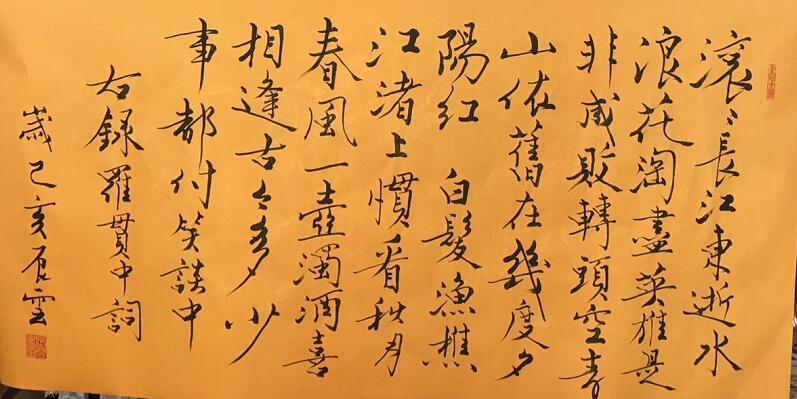 滾〻長江東逝水
浪花淘盡英雄是
非成敗轉頭空青
山依舊在幾度夕
陽紅 白髮漁樵
江渚上慣看秋月
春風一壺濁酒喜
相逢古今多少
事都付笑談中
右錄羅貫中詞
歲己亥雲